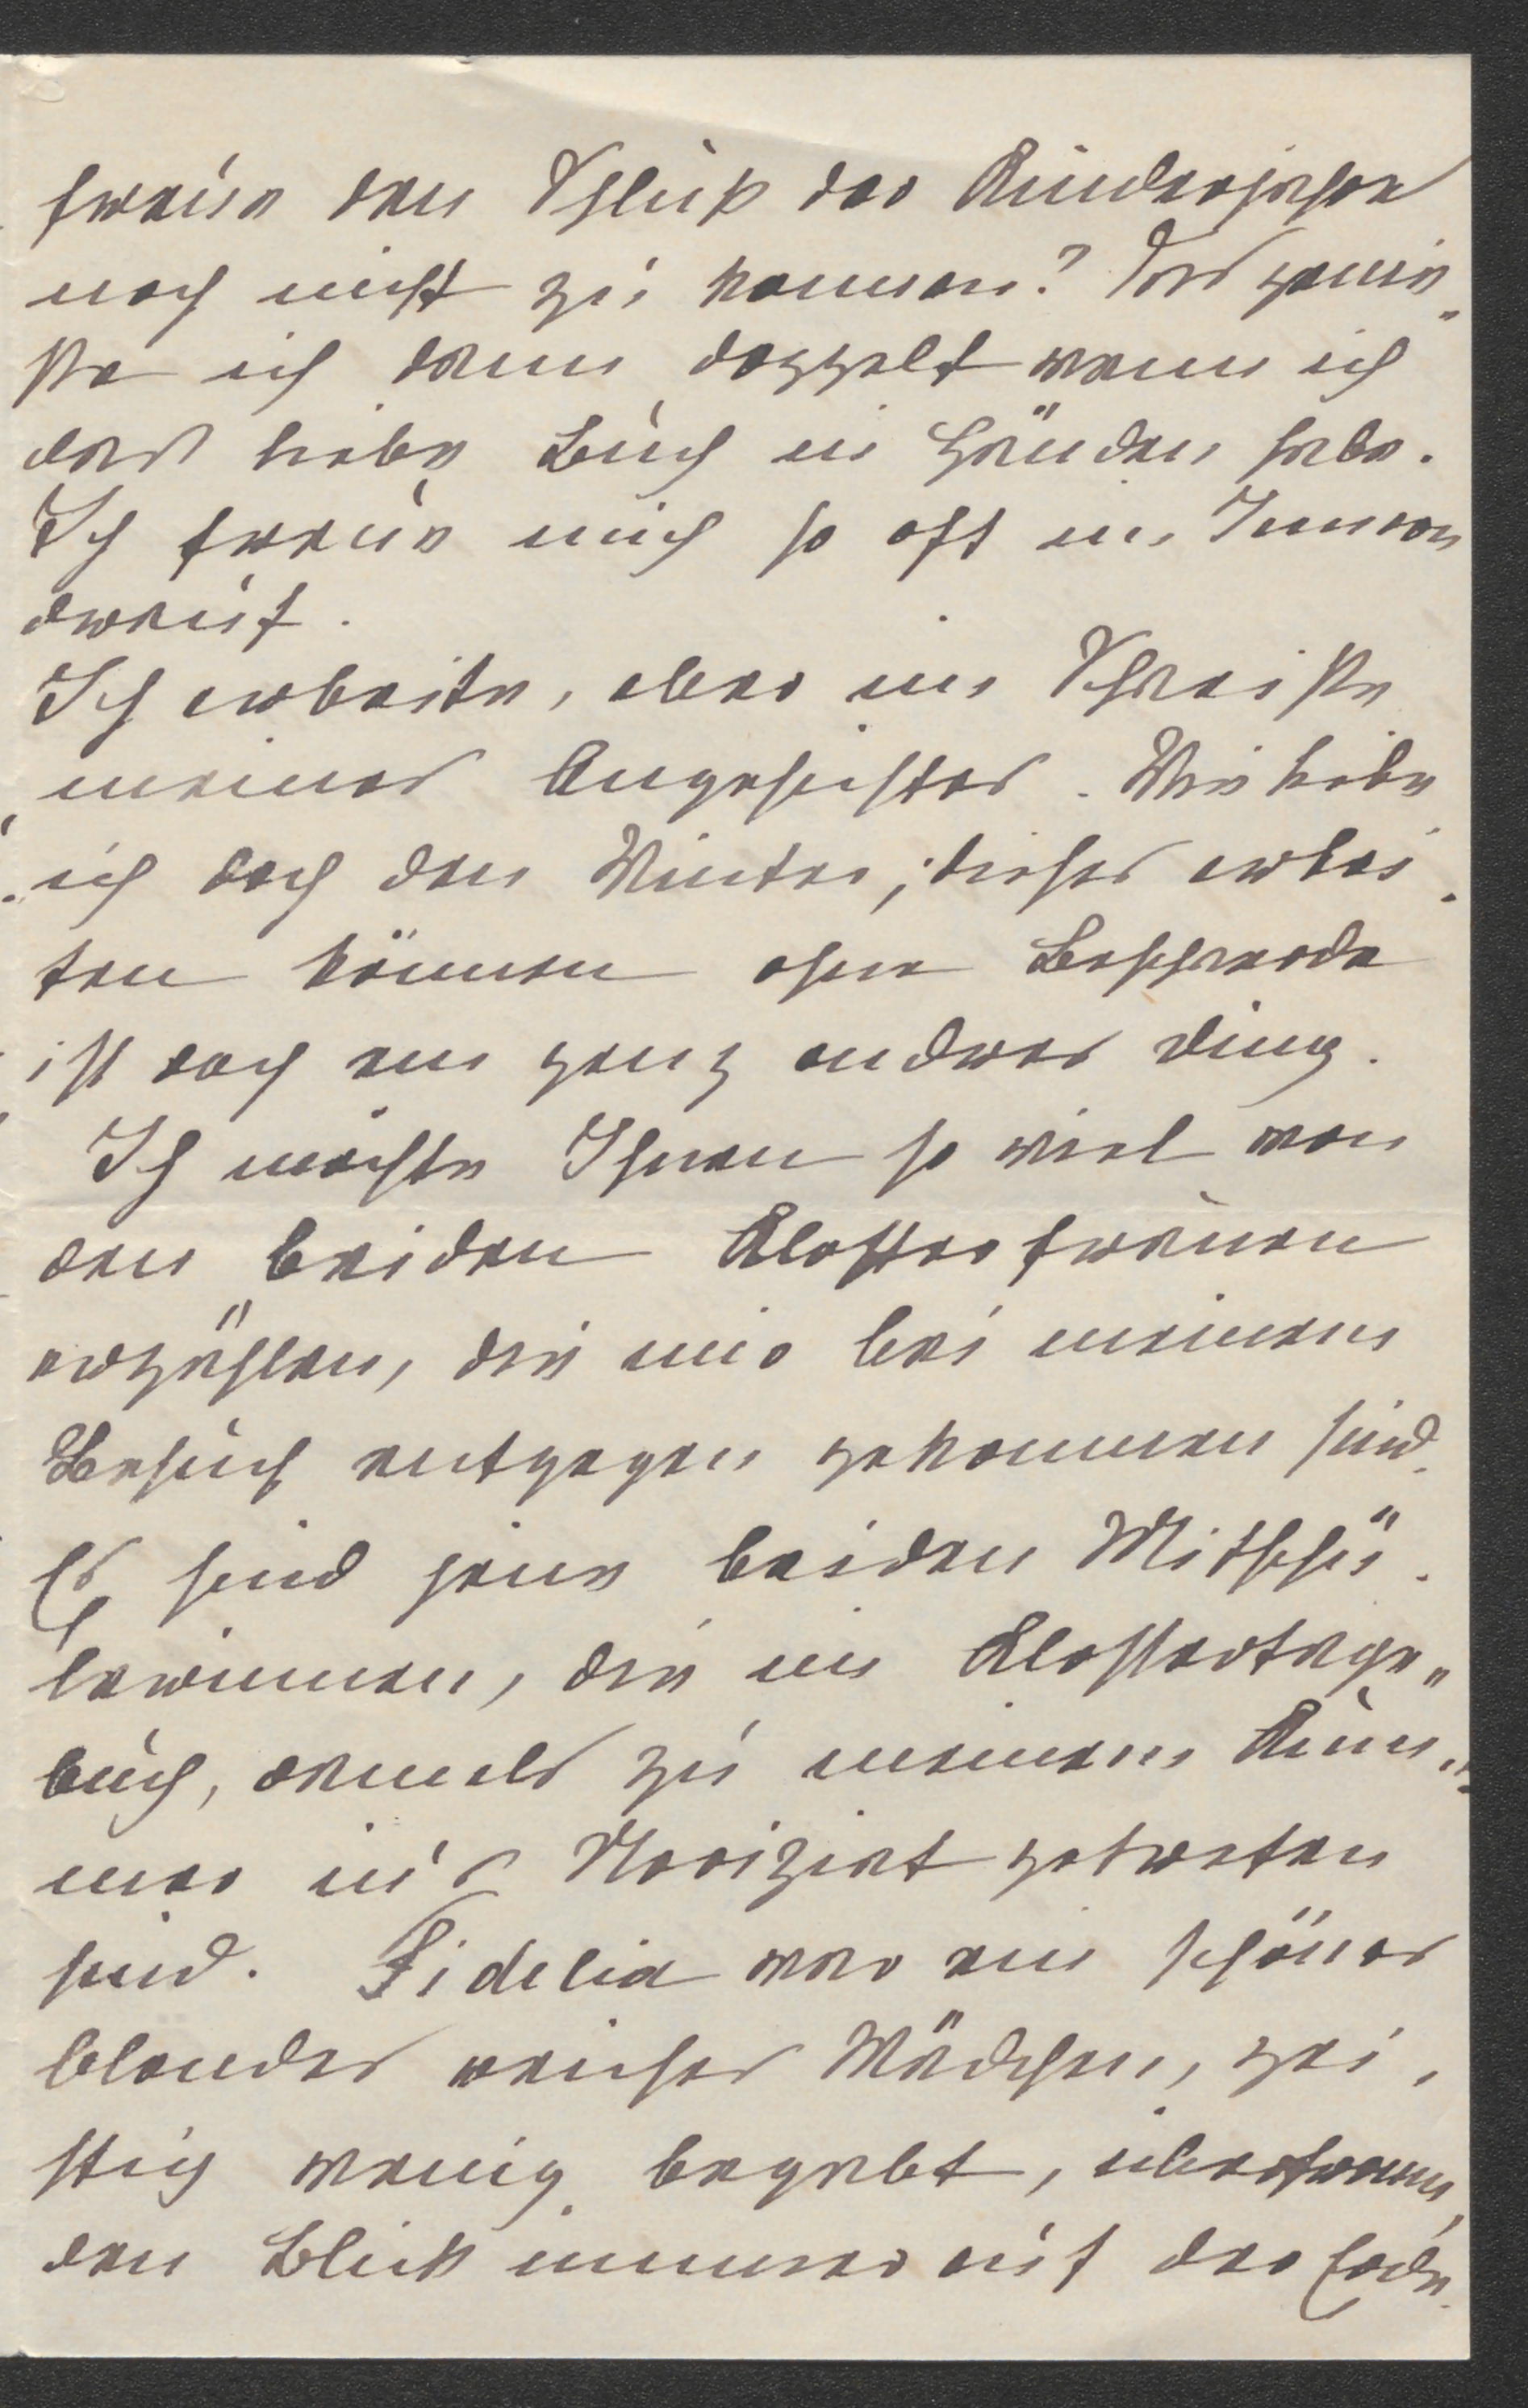 freue den Schluß der Kinderjahre
noch nicht zu kennen? Das genie-
ße ich dann doppelt wenn ich
das liebe Buch in Händen habe.
Ich freue mich so oft im Innern
darauf.
Ich arbeite, aber im Schweiße
meines Angesichtes. Wie liebe
ich doch den Winter, dieses arbei-
ten können ohne Beschwerde
ist doch ein ganz anderes Ding.
Ich möchte Ihnen so viel von
den beiden Klosterfrauen
erzählen, die mir bei meinem
Besuch entgegen gekommen sind.
Es sind jene beiden Mitschü-
lerinnen, die im Klostertage-
buch, damals zu meinem Kum-
mer in's Noviziat getreten
sind. Fidelia war ein schönes
blondes weiches Mädchen, gei-
stig wenig begabt, überfromm,
den Blick immer auf der Erde.